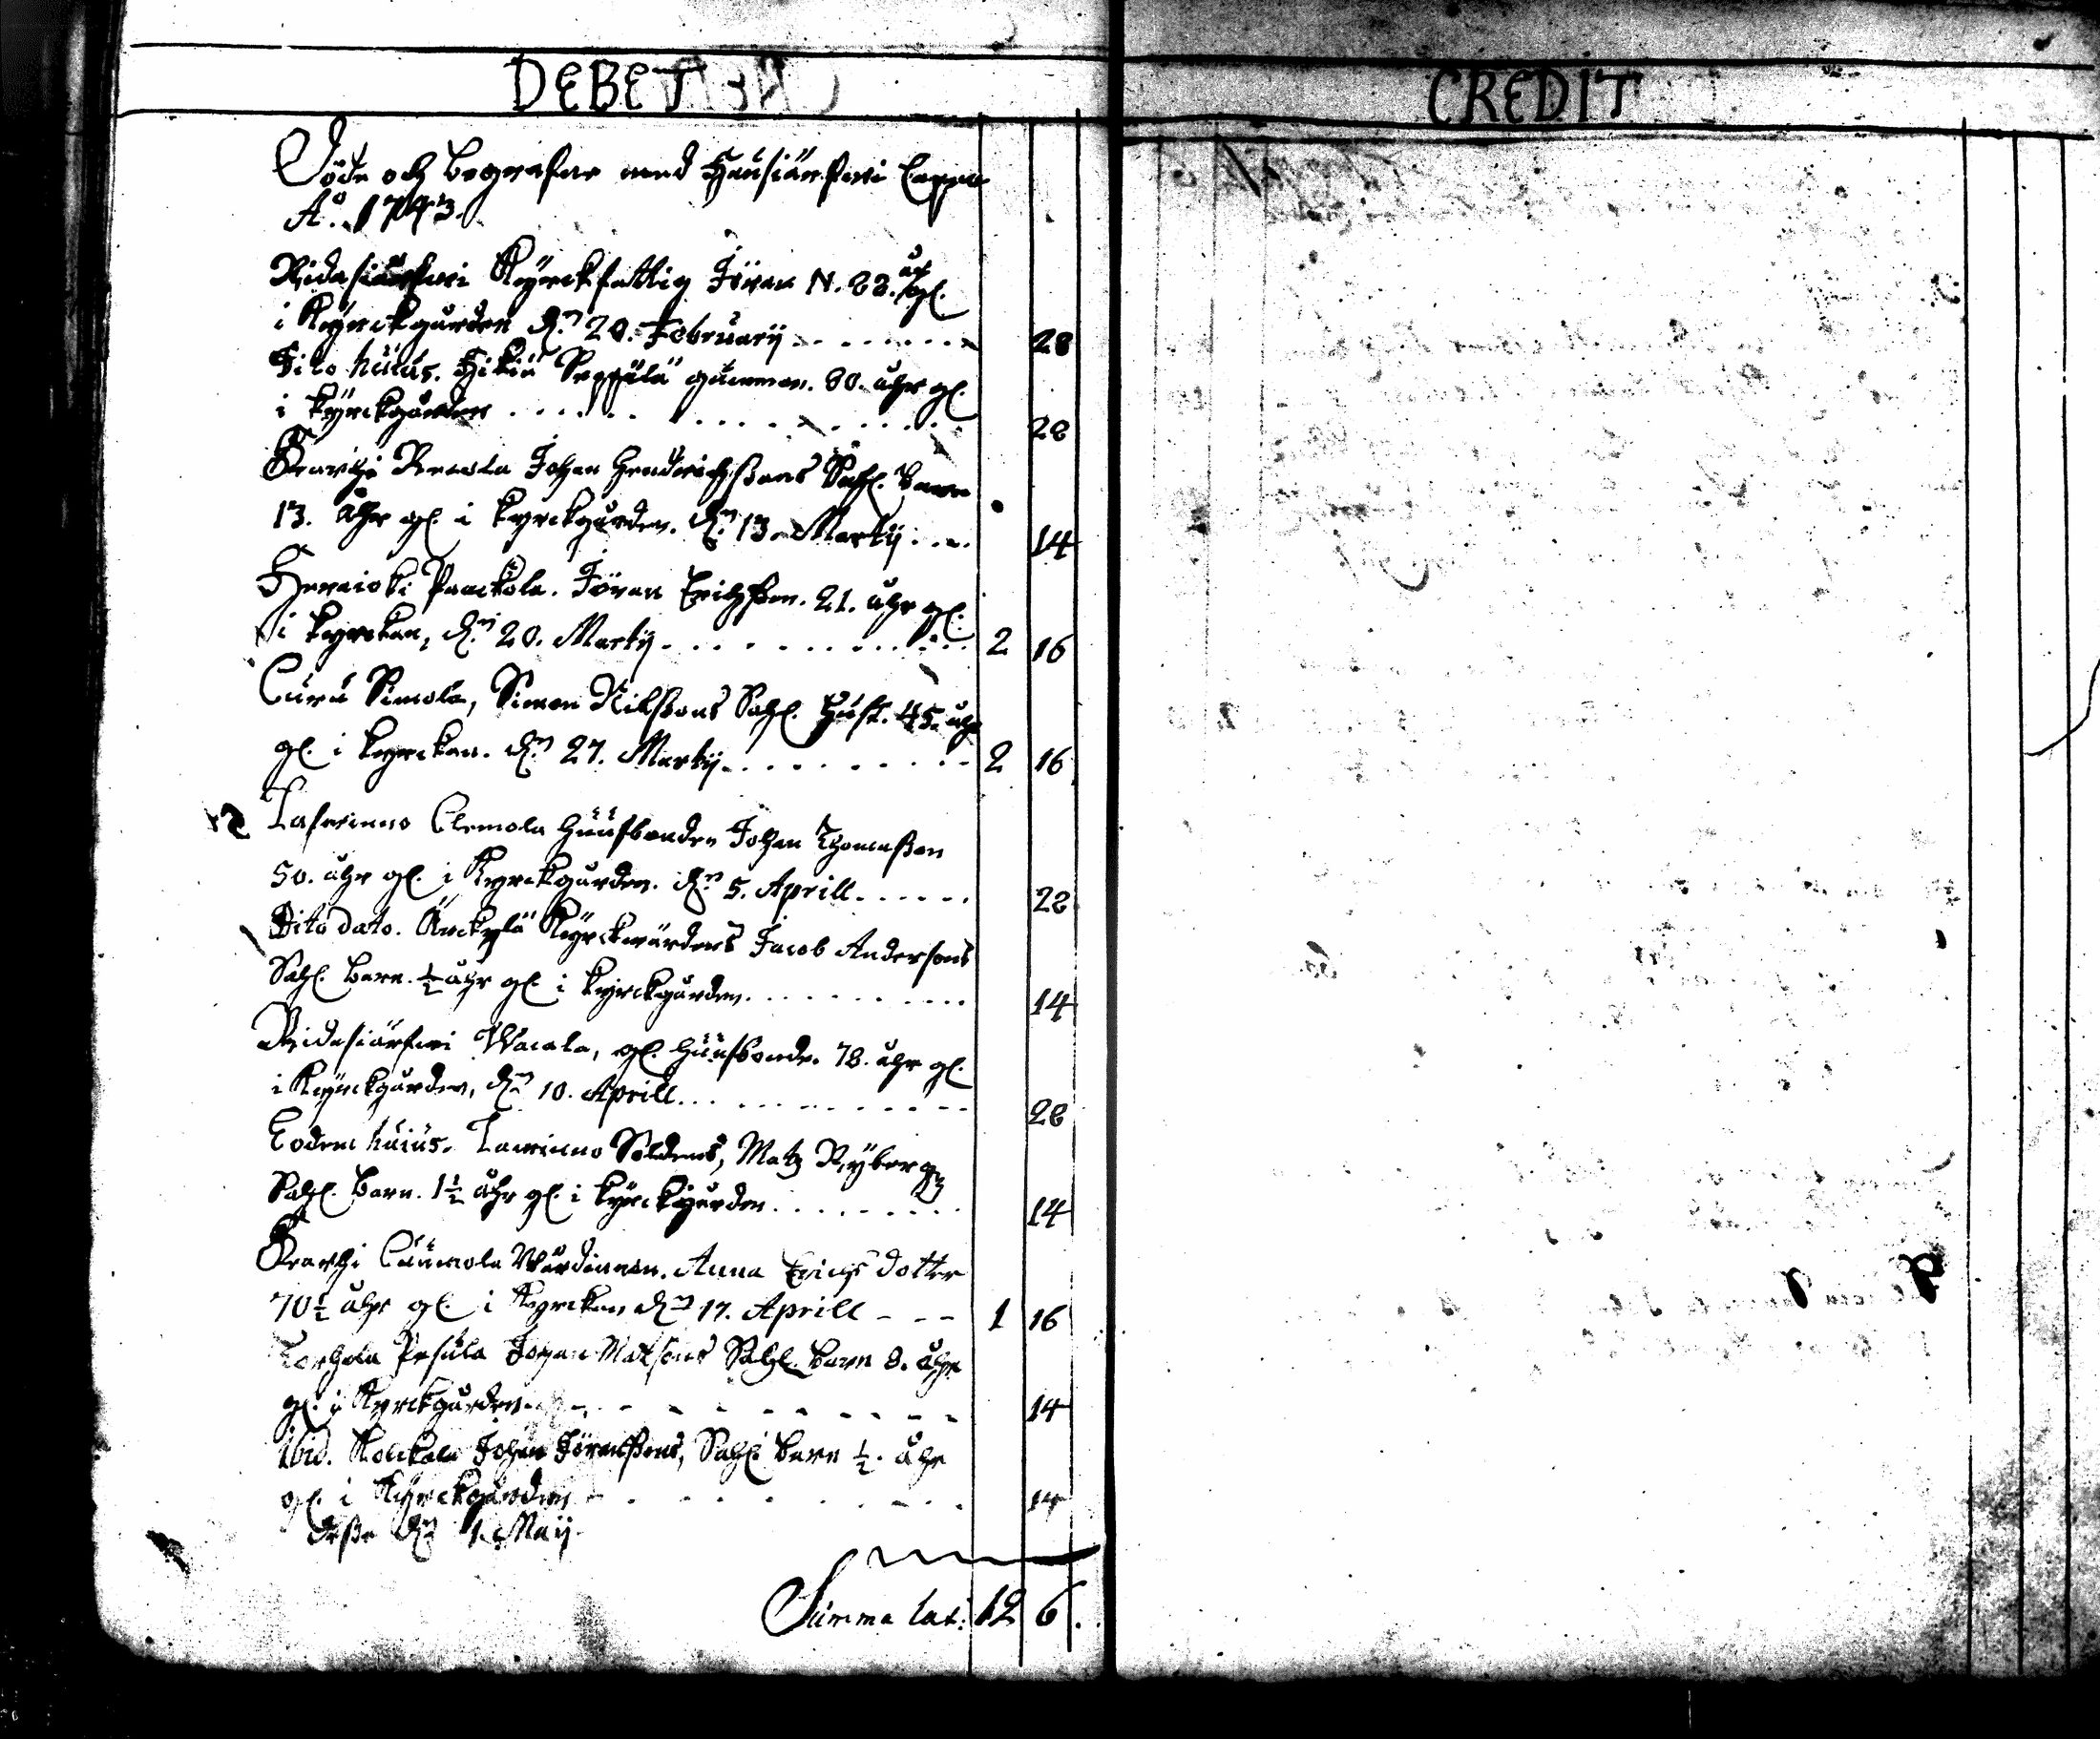 DEBET
CREDIT
Döde och begrafne med Hausiärfwi Capell
Aõ. 1743.
Ridasiärfwi Kyrckfattig Jöran N. 88. åhr gl.
i Kyrckgården d. 20. February 28
Dito huius. Hikiä Seppälä gumman. 80. åhr gl.
i kyrckgården 28
Karhi Remola Johan Hendrichssons Sahl. barn
13. Åhr gl. i kyrckgården. d. 13. Marty 14
Heraioki Paackola. Jöran Erichsson. 21. åhr gl.
i kyrckan, d. 20. Marty 2 16
Curu Simola, Simon Nilssons Sahl. Hust. 45. åhr
gl. i kyrckan. d. 27. Marty 2 16
Lafwinno Clemola Huusbonden Johan Thomasson
50. åhr gl. i Kyrckgården. d. 5. Aprill 28
Dito dato. Änckylä Kyrckwärdens Jacob Andersons
Sahl. barn. ½ åhr gl. i kyrckgården 14
Ridasiärfwi Wacala, gl. huusbonde. 78. åhr gl.
i Kyrckgården, d. 10. Aprill 28
Eodem huius. Lawinno Soldens, Matz Ryberg
Sahl. Barn. 1½ åhr gl. i kyrckgården 14
Karhi Caumola Wärdinnan. Anna Erichs dotter
70½ åhr gl. i Kyrckan d. 17. Aprill 1 16
Torhola Pesula Johan Matsons Sahl. barn 8. åhr
gl. i Kyrckgården 14
Ibid. Kolckala Johan Jöranssons, Sahl. barn ½. åhr
gl. i Kyrckgården 14
desse d. 1. Maij
Summa lat. 12 6.